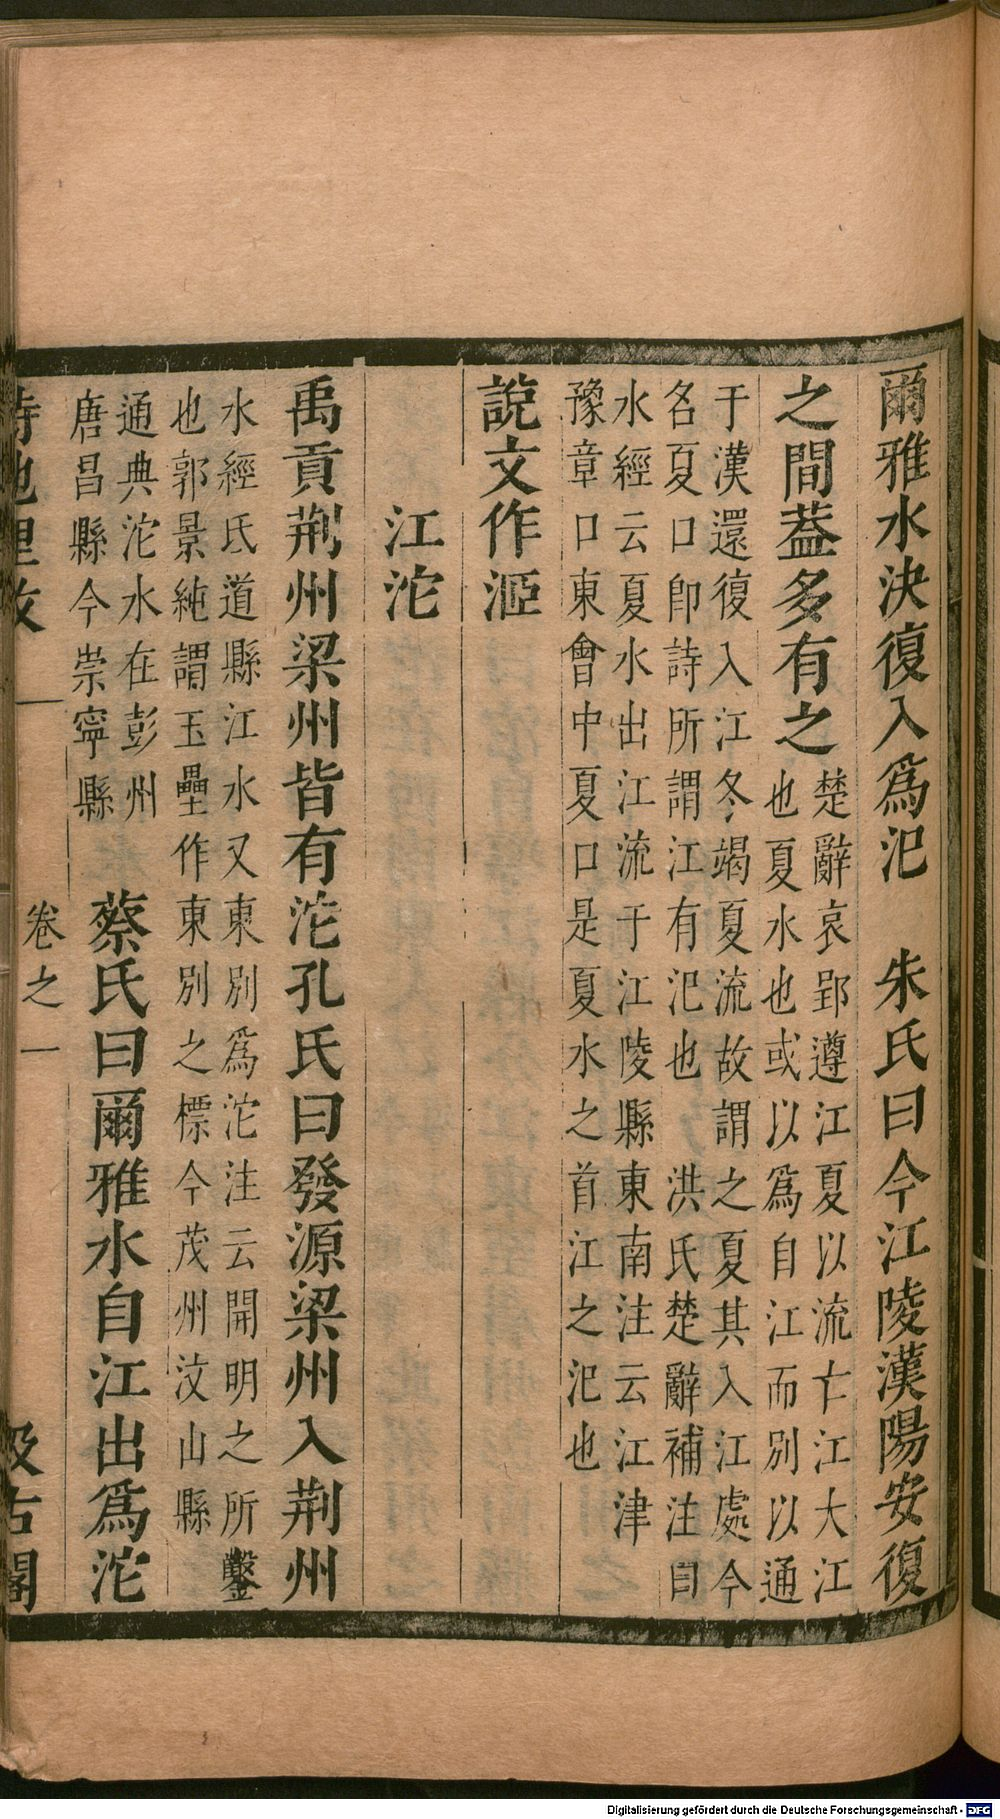 爾雅水決復入爲汜　朱氏曰今江陵漢陽安復
之間葢多有之
楚辭哀郢遵江夏以流亡江大江
也夏水也或以爲自江而別以通
于漢還復入江冬竭夏流故謂之夏其入江處今
名夏口卽詩所謂江有汜也　洪氏楚辭補注自
水經云夏水出江流于江陵縣東南注云江津
豫章口東會中夏口是夏水之首江之汜也
說文作洍
江沱
禹貢荆州梁州皆有沱孔氏曰發源梁州入荆州
水經氐道縣江水又東別爲沱注云開明之所鑿
也郭景純謂玉壘作東別之標今茂州汶山縣
通典沱水在彭州
唐昌縣今崇寧縣
蔡氏曰爾雅水自江出爲沱
詩地理攷
卷之一
汲古閣
Digitalisierung gefördert durch die Deutsche Forschungsgemeinschaft - DFG